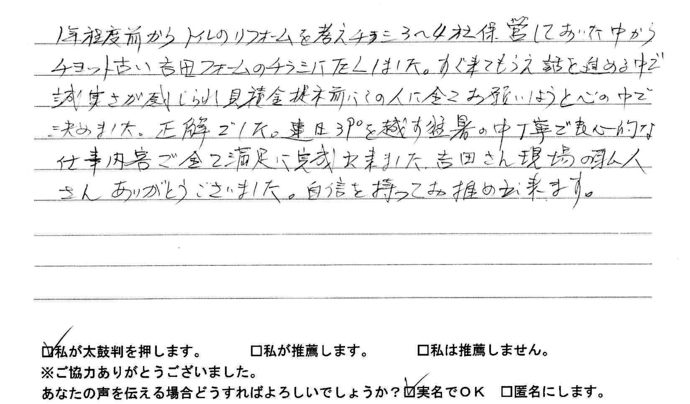 1年程度前からトイレのリフォームを考えチラシ3〜4社保管しておいた中から
チョット古い吉田フォームのチラシにTELしました。すぐ来てもらえ話を進める中で
誠実さが感じられ見積金提示前にこの人に全てお願いしようと心の中で
決めました。正解でした。連日39°を越す猛暑の中丁寧で良心的な
仕事内容で全て満足に完成出来ました。吉田さん現場の職人
さんありがとうございました。自信を持ってお推め出来ます。
☑私が太鼓判を押します。 □私が推薦します。 □私は推薦しません。
※ご協力ありがとうございました。
あなたの声を伝える場合どうすればよろしいでしょうか?☑実名でOK □匿名にします。